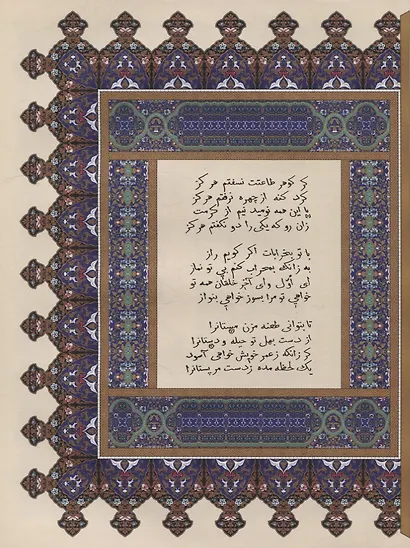 گر گوهر طاعتت نسفتم هرگز
گرد گنه از چهره نرفتم هرگز
با این همه نومید نیم از کرمت
زان رو که یکی را دو نگفتم هرگز
با تو بخرابات اگر گویم راز
به زانکه بمحراب کنم بی تو نماز
ای اول و ای آخر خلقان همه تو
خواهی تو مرا بسوز خواهی بنواز
تا بتوانی طعنه مزن مستانرا
از دست بهل تو حیله و دستانرا
گر زانکه ز عمر خویش خواهی آسود
یک لحظه مده ز دست مر مستانرا